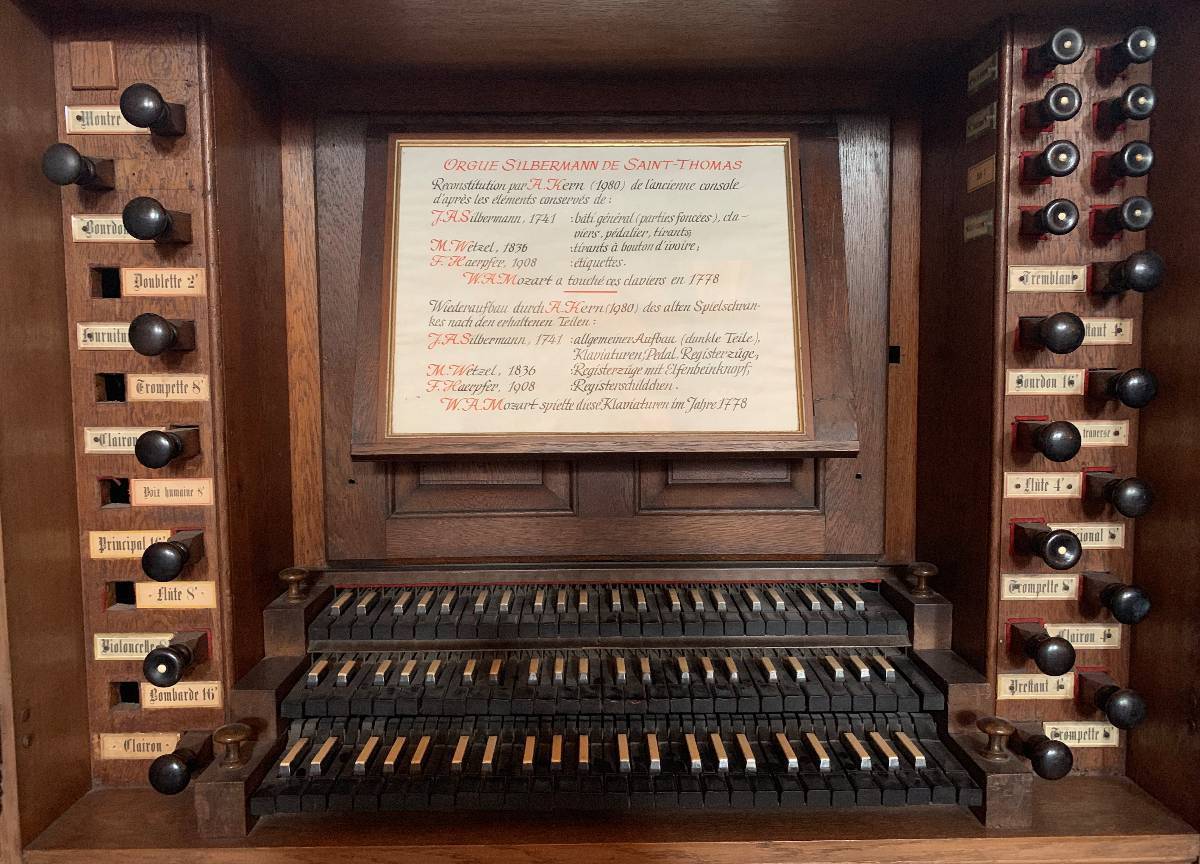 ORGUE SILBERMANN DE SAINT-THOMAS
Reconstitution par A. Kern (1980) de l'ancienne console
d'après les éléments conservés de :
J.A.Silbermann, 1741 : bâti général (parties foncées), cla-
viers, pédalier, tirants;
M. Wetzel, 1836 : tirants à bouton d'ivoire;
F. Haerpfer, 1908 : étiquettes.
W.A.Mozart a touché ces claviers en 1778
Wiederaufbau durch A. Kern (1980) des alten Spielschran-
kes nach den erhaltenen Teilen :
J.A.Silbermann, 1741 : allgemeiner Aufbau (dunkle Teile),
Klaviaturen, Pedal, Registerzüge;
M. Wetzel, 1836 : Registerzüge mit Elfenbeinknopf;
F. Haerpfer, 1908 : Registerschildchen.
W.A.Mozart spielte diese Klaviaturen im Jahre 1778
Montre
Bourdon
Doublette 2'
Trompette 8'
Clairon
Voix humaine 8'
Principal 16'
Flûte 8'
Violoncelle 8'
Bombarde 16'
Clairon
Tremblant
Bourdon 16'
traverse
Flûte 4'
Trompette 8'
Clairon 4'
Prestant 4'
Trompette